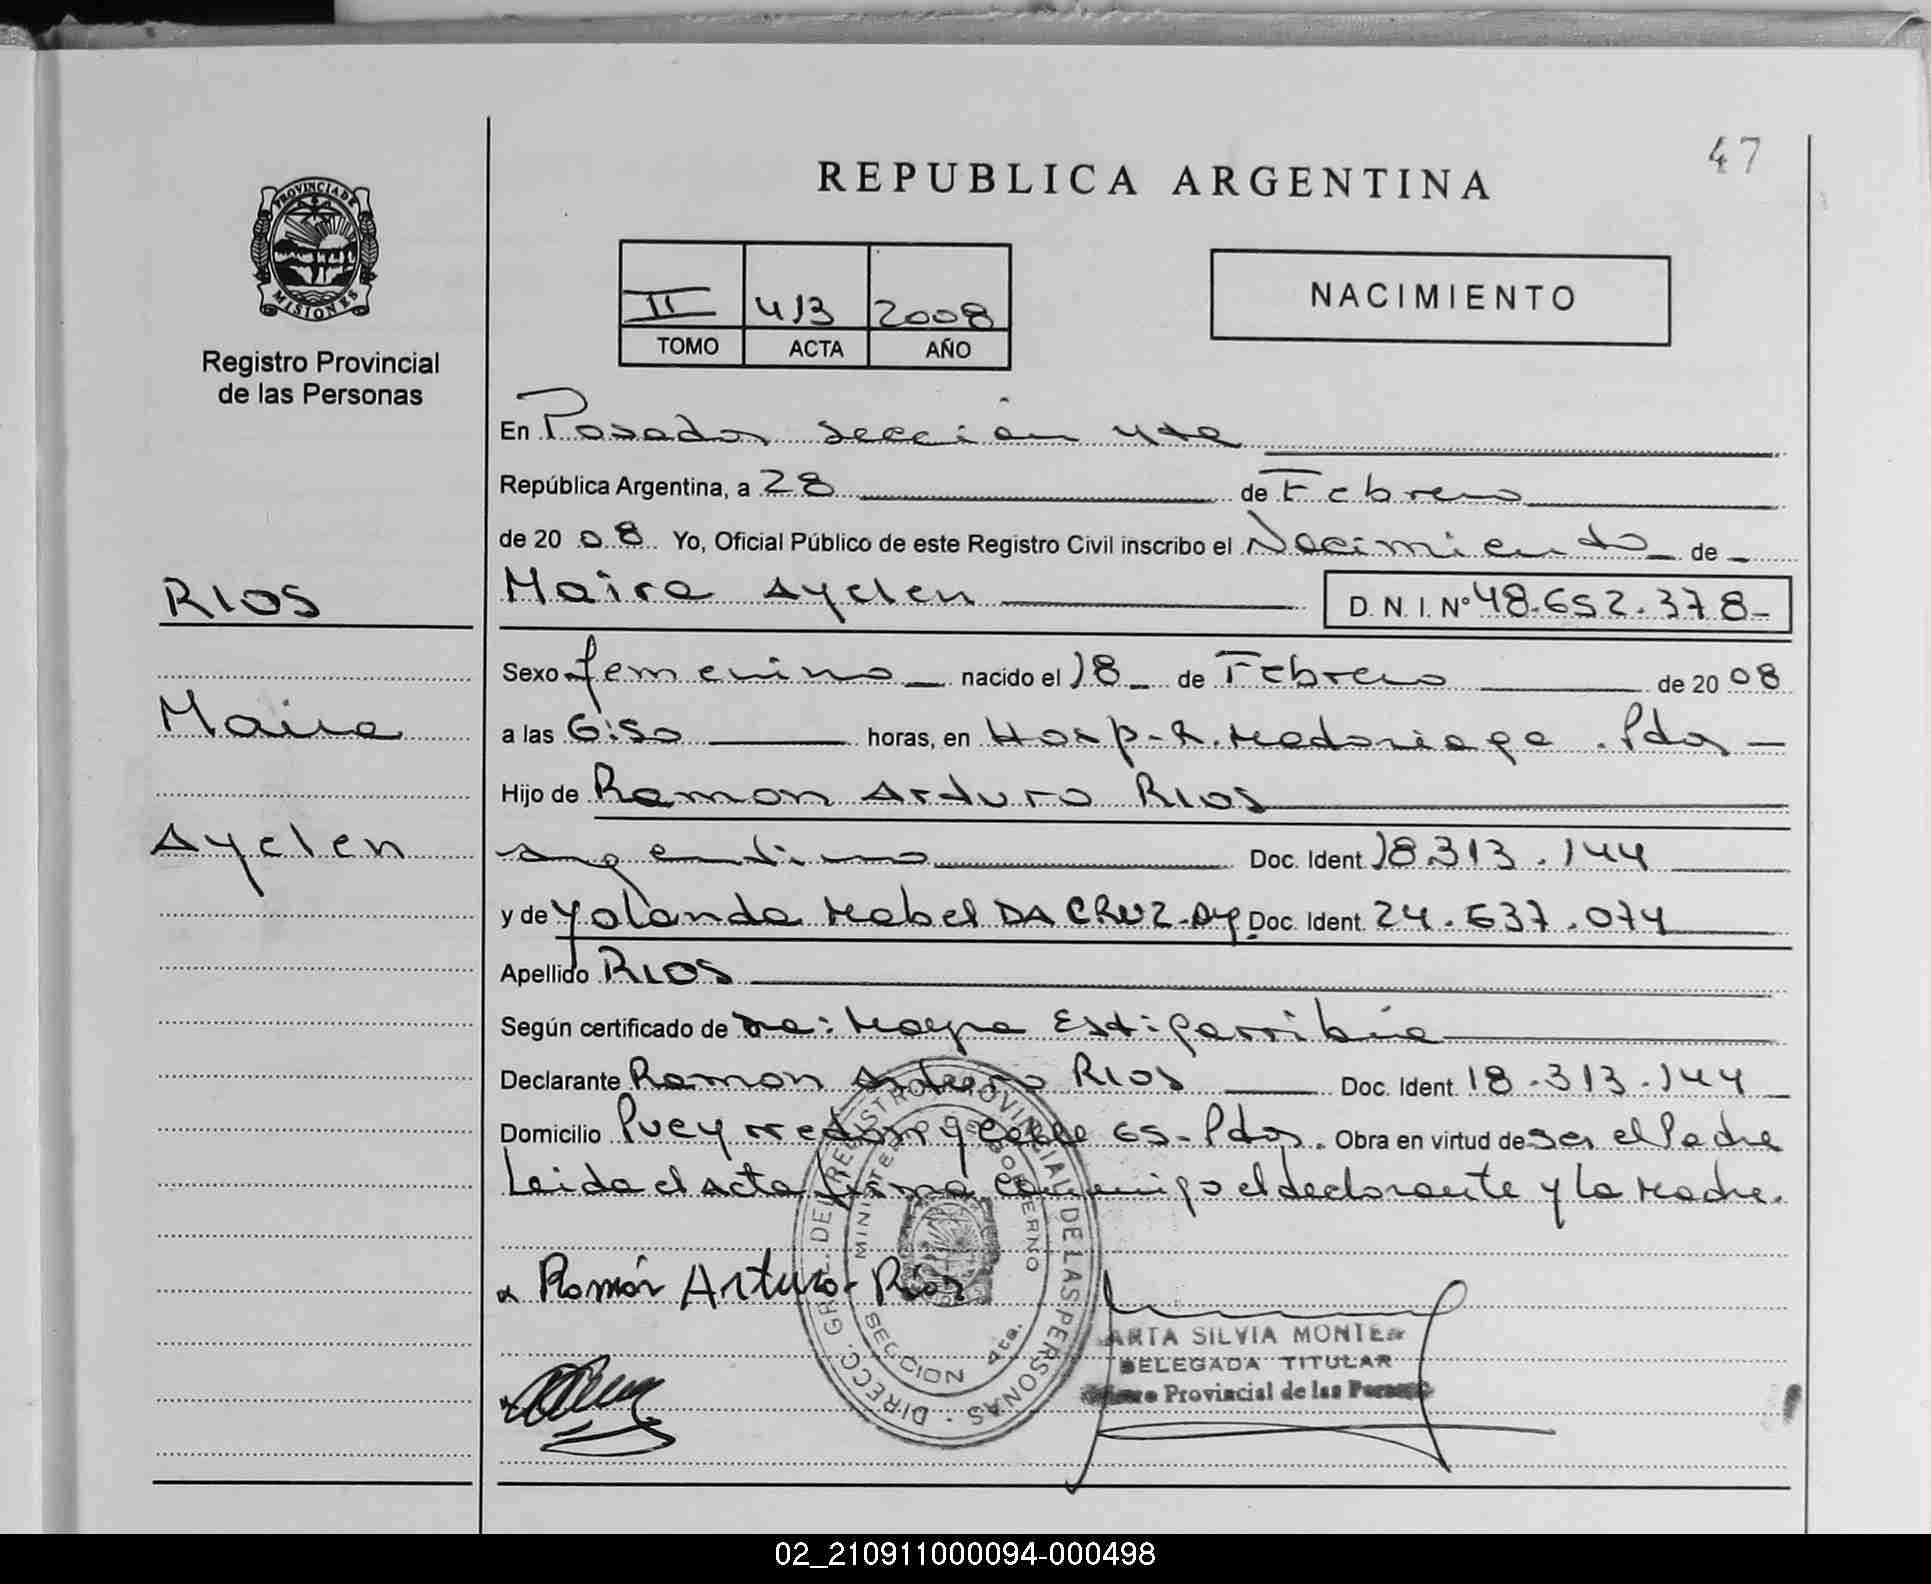 47
REPUBLICA ARGENTINA
PROVINCIA DE
MISIONES
Registro Provincial
de las Personas
II 413 2008
TOMO ACTA AÑO
NACIMIENTO
En Posadas sección 4ta
República Argentina, a 28 de Febrero
de 20 08 Yo, Oficial Público de este Registro Civil inscribo el Nacimiento de
RIOS
Maira Ayelen D. N. I. Nº 48.652.378
Sexo femenino nacido el 18 de Febrero de 20 08
Maira
a las 6:50 horas, en Hosp. R. Madariaga . Pdas
Hijo de Ramon Arturo RIOS
Ayelen
argentino Doc. Ident. 18.313.144
y de Yolanda Mabel DA CRUZ - Doc. Ident. 24.637.074
Apellido RIOS
Según certificado de Estigarribia
Declarante Ramon Arturo RIOS Doc. Ident. 18.313.144
Domicilio Pueyrredon y calle 65 - Pdas. Obra en virtud de ser el Padre
Leida el acta firma conmigo el declarante y la Madre.
DIRECC. GRAL. DEL REGISTRO PROVINCIAL DE LAS PERSONAS
MINISTERIO DE GOBIERNO
SECCION 4ta.
Ramón Arturo Ríos
ARTA SILVIA MONTE
DELEGADA TITULAR
Provincial de las Personas
02_210911000094-000498